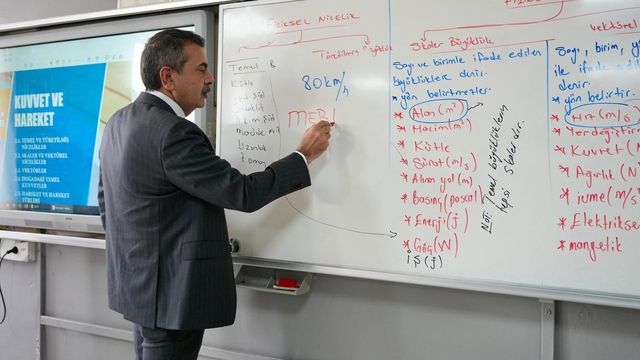 KUVVET VE
HAREKET
2.1. TEMEL VE TÜRETİLMİŞ
NİCELİKLER
2.2. SKALER VE VEKTÖREL
NİCELİKLER
2.3. VEKTÖRLER
2.4. DOĞADAKİ TEMEL
KUVVETLER
2.5. HAREKET VE HAREKET
TÜRLERİ
FİZİKSEL NİCELİK
Temel
Türetilmiş
Kütle
Uzunluk
Zaman
80km/h
MEB
Skaler Büyüklük
Sayı ve birimle ifade edilen
büyüklüklere denir.
* yön belirtmezler.
* Alan (m²)
* Hacim (m³)
* Kütle
* Sürat (m/s)
* Alınan yol (m)
* Basınç (pascal)
* Enerji (j)
* Güç (W)
İş (j)
Not: Temel büyüklüklerin
hepsi skalerdir.
vektörel
Sayı, birim, y
ile ifade edilen
denir.
* yön belirtir.
* Hız (m/s)
* Yerdeğiştir
* Kuvvet (N
* Ağırlık (N
* ivme (m/s
* Elektrikse
* manyetik